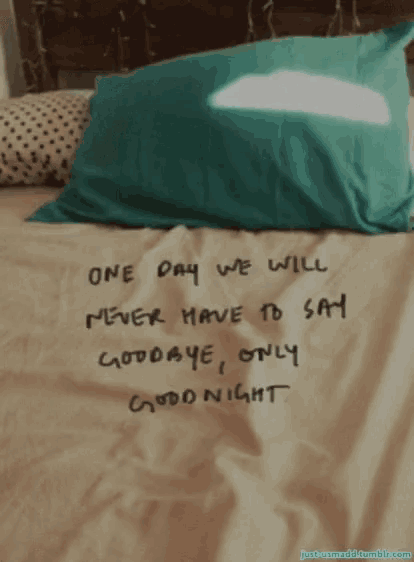 ONE DAY WE WILL
NEVER HAVE TO SAY
GOODBYE, ONLY
GOODNIGHT
just-usmadd.tumblr.com